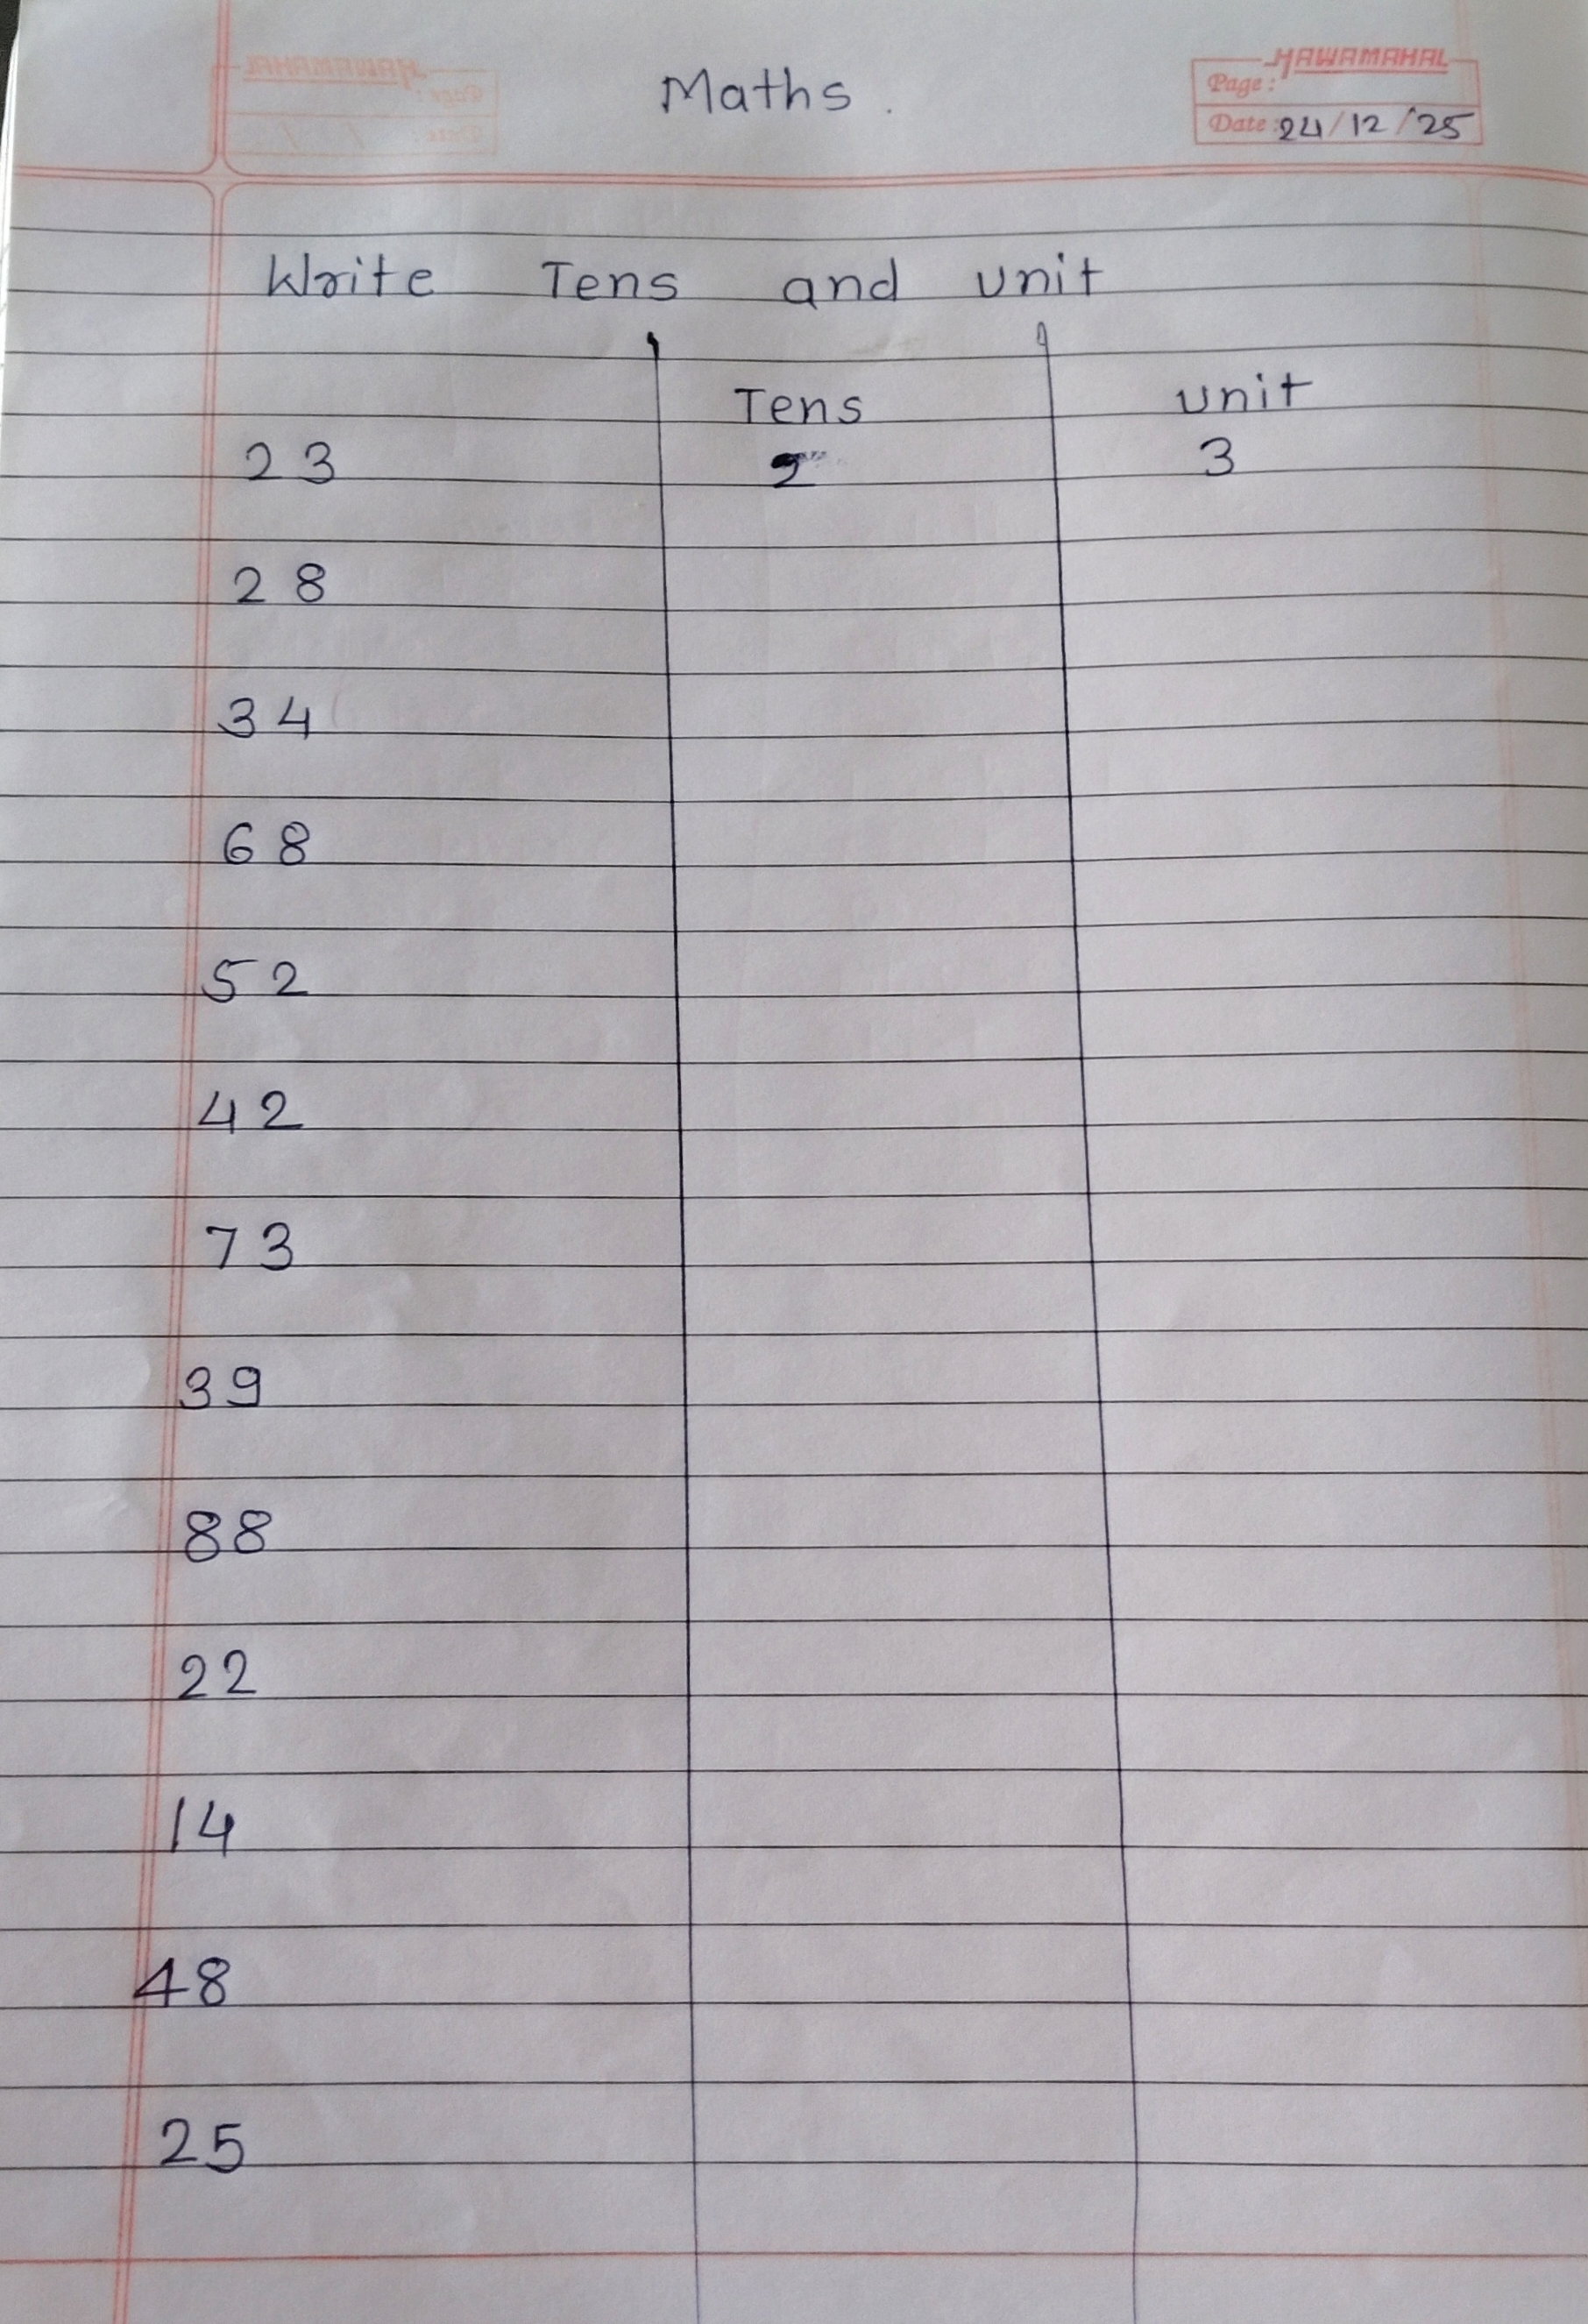 Maths.
HAWAMAHAL
Page:
Date: 24/12/25
Write Tens and unit
Tens unit
23 2 3
28
34
68
52
42
73
39
88
22
14
48
25